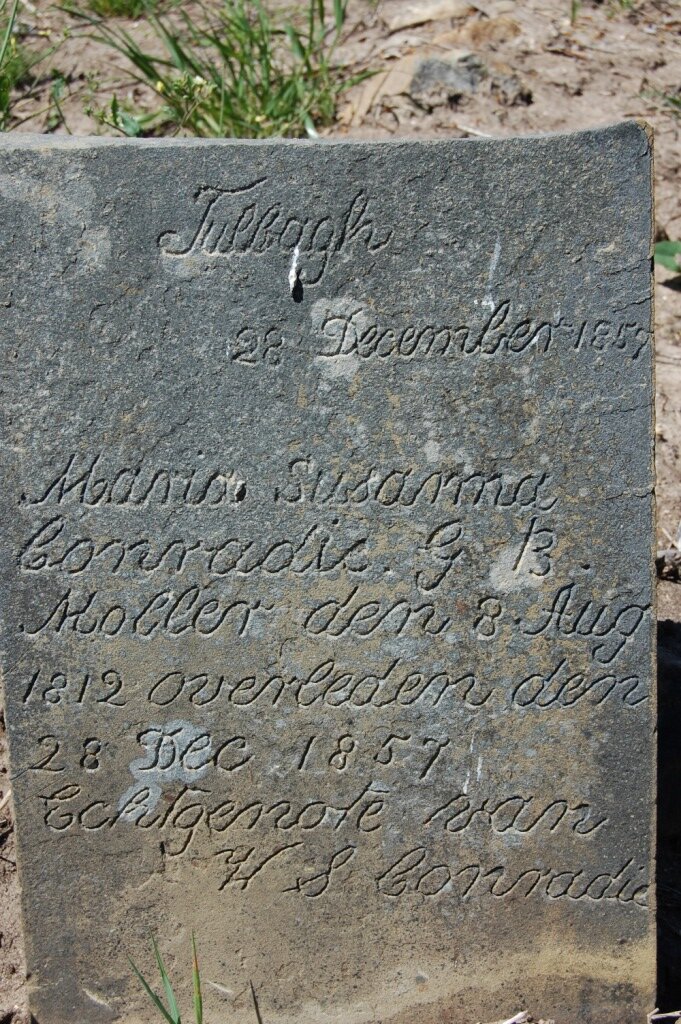 Tulbagh
28 December 1857
Maria Susanna
Conradie. G B.
Moller den 8 Aug
1812 overleden den
28 Dec 1857
Echtgenote van
W S Conradie